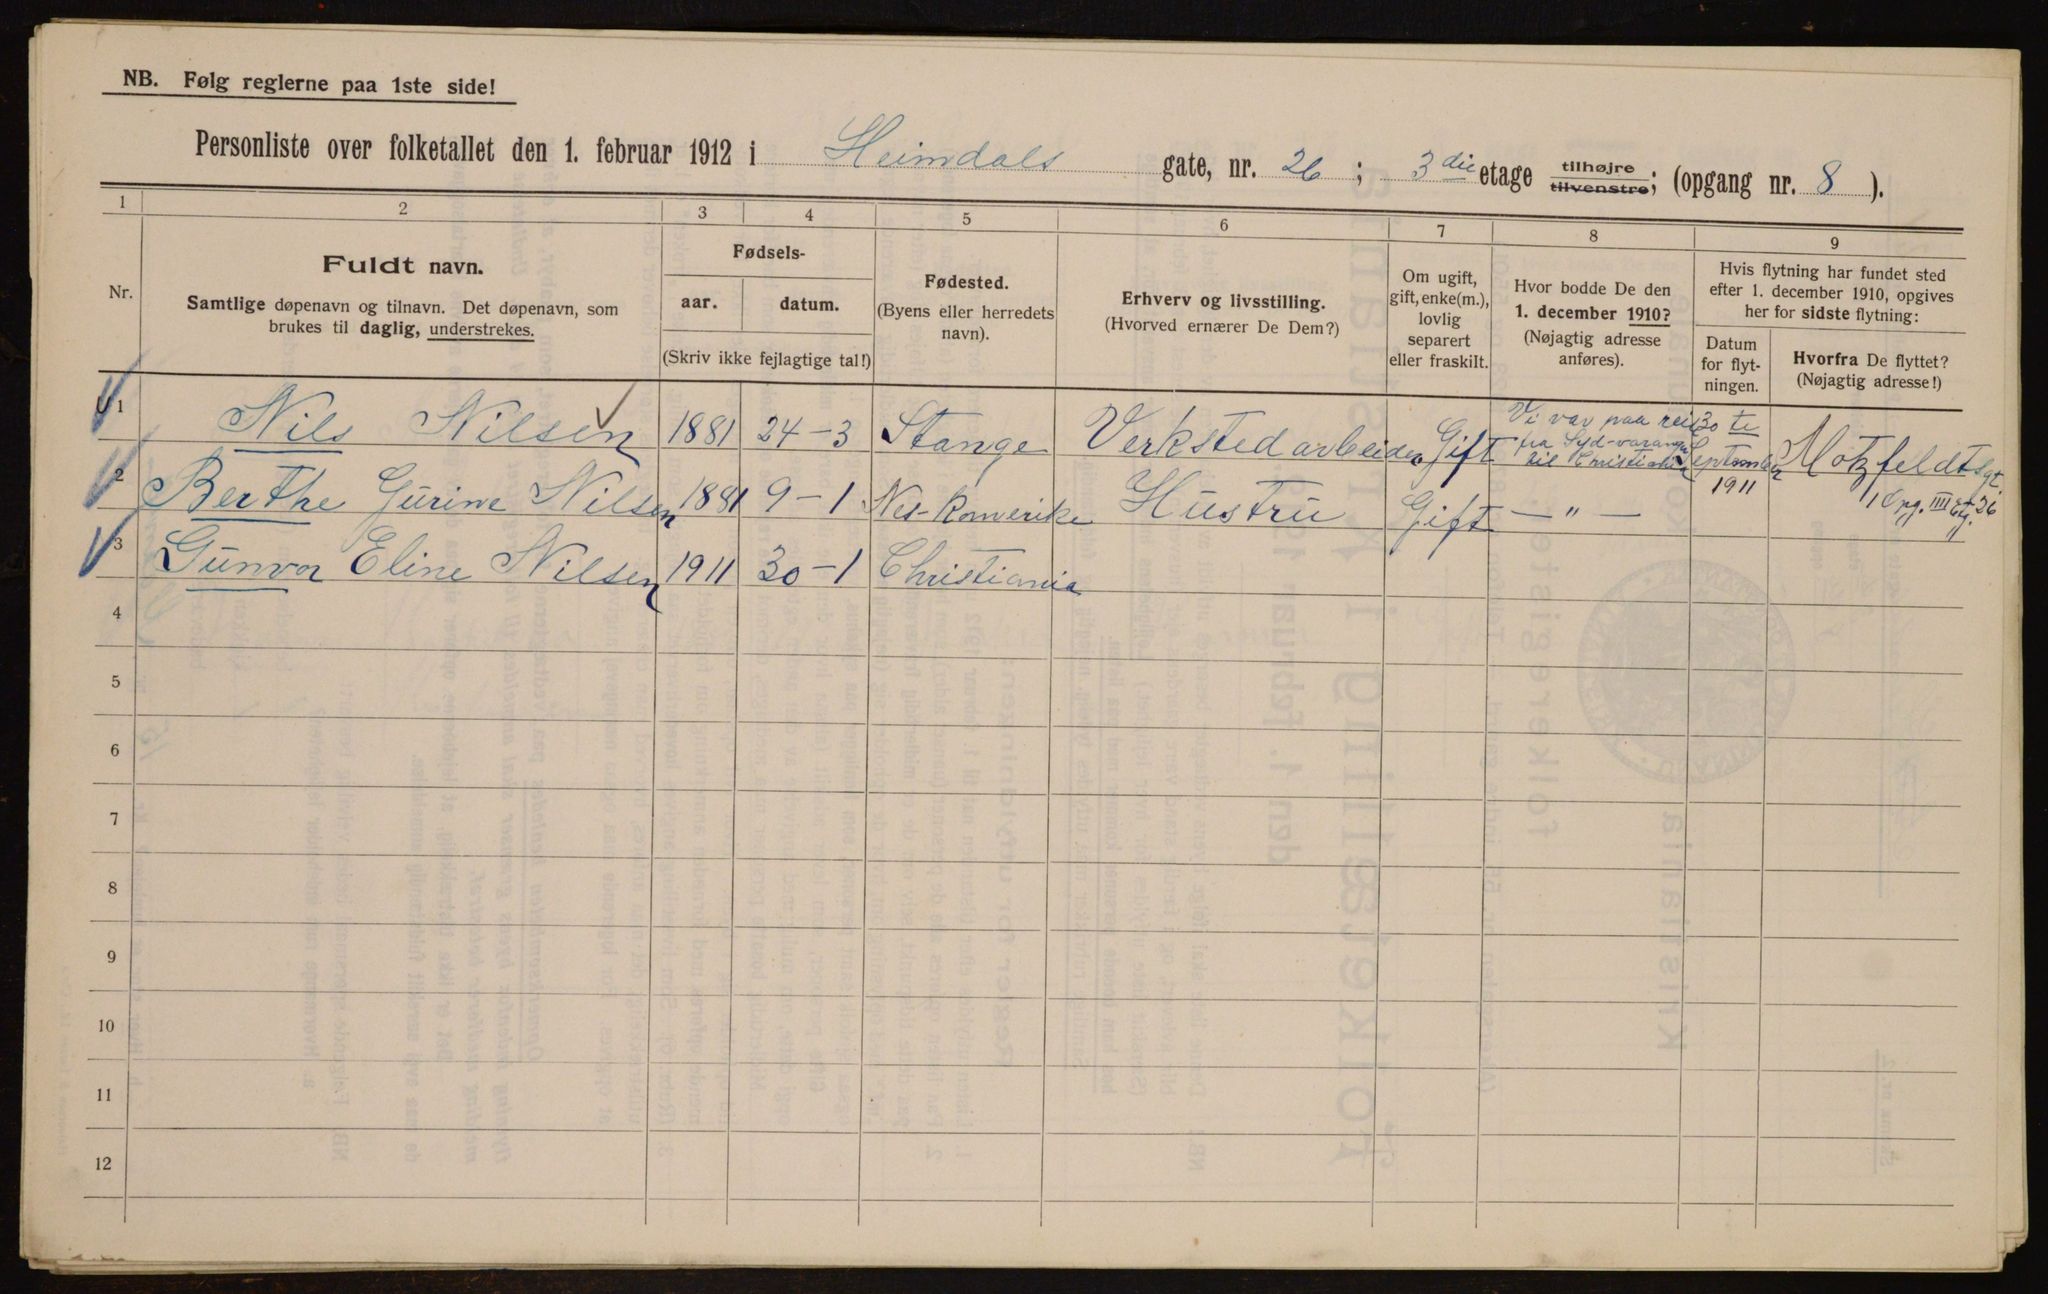 NB. Følg reglerne paa 1ste side!
Personliste over folketallet den 1. februar 1912 i Heimdals gate, nr. 26 ; 3die etage tilhøjre tilvenstre; (opgang nr. 8 ).
1 2 3 4 5 6 7 8 9
Nr.
Fuldt navn.
Samtlige døpenavn og tilnavn. Det døpenavn, som
brukes til daglig, understrekes.
Fødsels-
aar. datum.
(Skriv ikke fejlagtige tal!)
Fødested.
(Byens eller herredets
navn).
Erhverv og livsstilling.
(Hvorved ernærer De Dem?)
Om ugift,
gift, enke(m.),
lovlig
separert
eller fraskilt.
Hvor bodde De den
1. december 1910?
(Nøjagtig adresse
anføres).
Hvis flytning har fundet sted
efter 1. december 1910, opgives
her for sidste flytning:
Datum
for flyt-
ningen.
Hvorfra De flyttet?
(Nøjagtig adresse!)
1 Nils Nilsen 1881 24-3 Stange Verkstedarbeider Gift Vi var paa reis
fra Syd-varanger
til Christiania
30te
September
1911
Motzfeldtsgt.
1 Opg. IIII Etg. 26
2 Berthe Gurine Nilsen 1881 9-1 Nes-Romerike Hustru Gift - " -
3 Gunvor Eline Nilsen 1911 30-1 Christiania
4
5
6
7
8
9
10
11
12